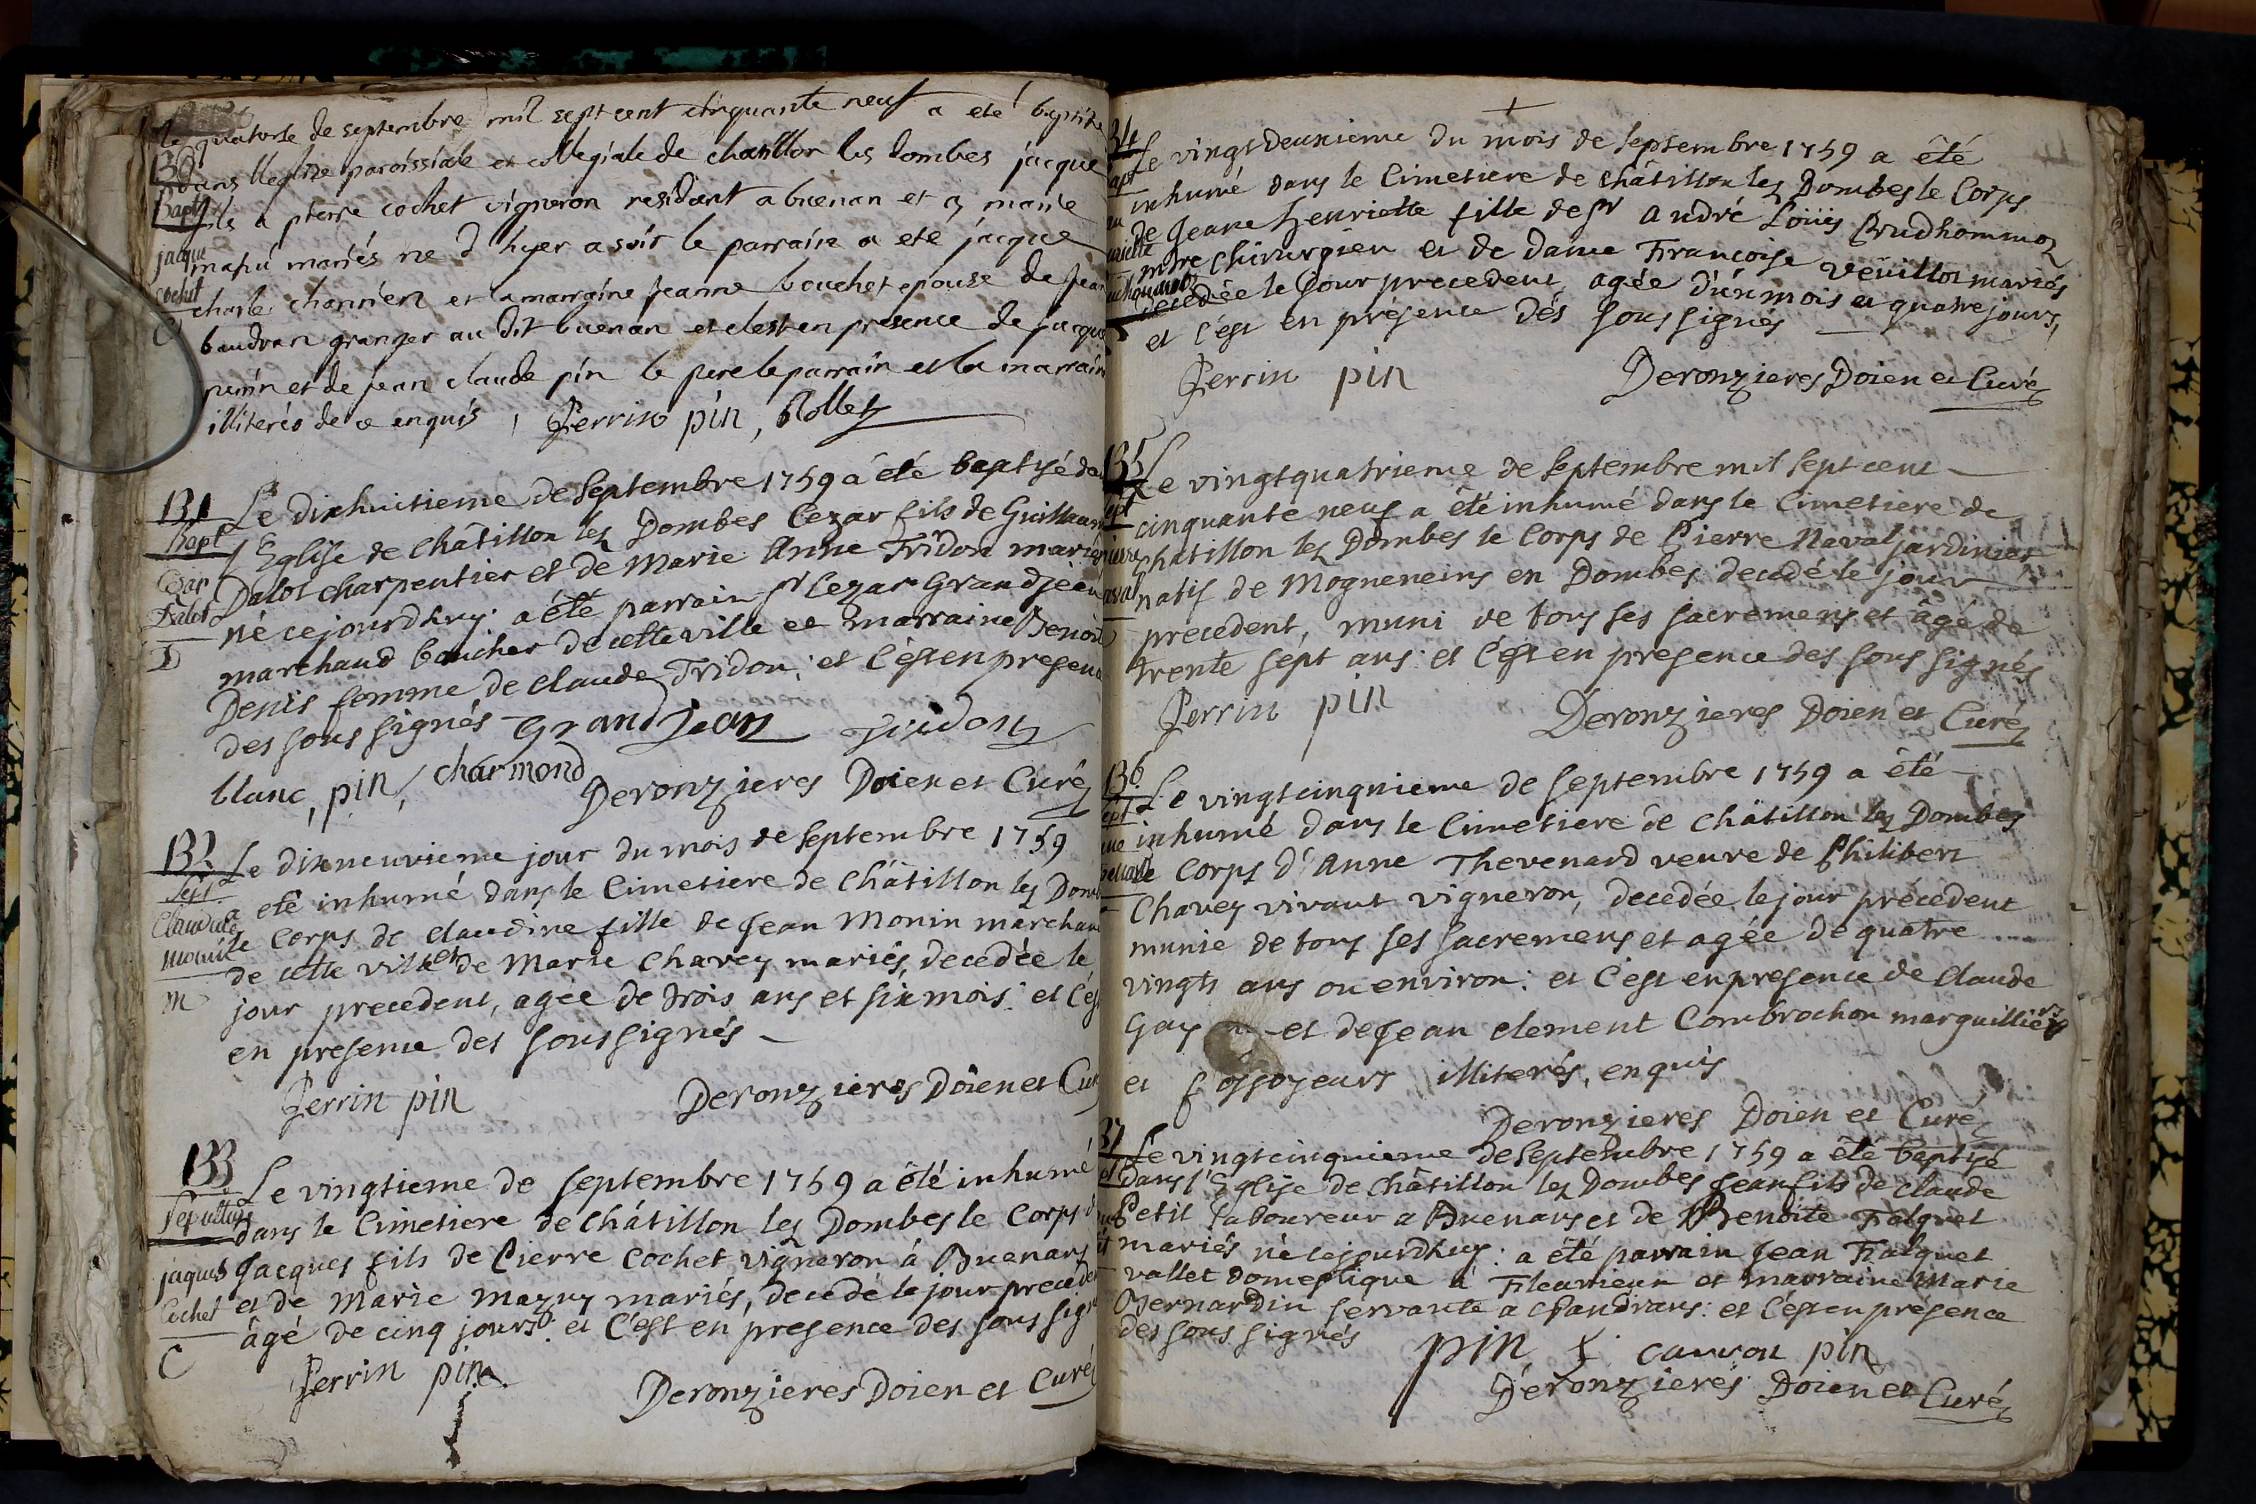 le quatorse de septembre mil sept cent cinquante neuf a eté baptize
130
dans lleglise paroissiale et collegiale de chatillon les dombes jacque
Bapt
fils a pierre cochet vigneron residant a buenan et a marie
jacque
maziu mariés ne d hyer a soir le parrain a eté jacque
cochet
charle charrien et la marraine jeanne bouchet epouse de jean
C
baudran granger au dit buenan et cest en presence de jacque
perrin et de jean claude pin le pere le parrain et la marraine
illiterés de ce enquis Perrin pin, Rollet
131
Bapt
Cezar
Dalot
D
Le dixhuitieme de Septembre 1759 a été baptisé da
l'Eglise de Châtillon lez Dombes Cezar fils de Guillaume
Dalot charpentier et de Marie Anne Tridon mariés
né cejourdhuy: a été parrain sr Cezar Grandjean
marchand boucher de cette ville et marraine Benoite
Denis femme de claude Tridon; et c'est en presence
des sous signés Grand Jean Tridon
blanc, pin, charmond
Deronzieres Doien et Curé
132
Sept.
Claudine
Monin
M
Le dixneuvieme jour du mois de Septembre 1759
a été inhumé dans le Cimetiere de Châtillon lez Domb
le Corps de claudine fille de Jean Monin marchand
de cette ville et de Marie Chavey mariés, decedée le
jour precedent, agée de trois ans et six mois: et c'est
en presence des sous signés
Perrin pin Deronzieres Doien et Cur
133
Sepulture
jaques
Cochet
C
Le vingtieme de Septembre 1759 a été inhumé
dans le Cimetiere de Châtillon lez Dombes le Corps d
Jacques fils de Pierre Cochet vigneron à Buenans
et de Marie Mazuy mariés, decedé le jour preceden
âgé de cinq jours: et c'est en presence des sous sign
Perrin pin
Deronzieres Doien et Curé
34
Le vingt Deuxieme du mois de Septembre 1759 a été
inhumé dans le Cimetiere de Châtillon lez Dombes le Corps
de Jeane Henriette fille de sr André Loüis Prudhommoz
mtre Chirurgien et de dame Françoise Veüillot mariés
decedée le jour precedent, agée d'un mois et quatre jours,
et c'est en présence des sous signés
Perrin pin Deronzieres Doien et Curé
135
Le vingtquatrieme de Septembre mil sept cent
cinquante neuf a été inhumé dans le Cimetiere de
Châtillon lez Dombes le Corps de Pierre Naval jardinier
natif de Mogneneins en Dombes decedé le jour
precedent, muni de tous ses sacremens et âgé de
trente sept ans: et c'est en presence des sous signés
Perrin pin
Deronzieres Doien et Curé
136
Le vingtcinquieme de Septembre 1759 a été
inhumé dans le Cimetiere de Châtillon lez Dombes
le Corps d'Anne Thevenard veuve de Philibert
Chavey vivant vigneron, decedée le jour précedent
munie de tous ses sacremens et agée de quatre
vingts ans ou environ: et c'est en presence de Claude
Gay et de Jean clement Combrochon marguilliers
et fossoyeurs illiterés, enquis
Deronzieres Doien et Curé
37
Le vingtcinquieme de Septembre 1759 a été baptisé
dans l'Eglise de Châtillon lez Dombes Jean fils de Claude
Petit laboureur a Buenans et de Benoite Falquet
mariés né cejourdhuy: a été parrain Jean Falquet
vallet domestique a Fleurieux et marraine Marie
Bernardin servante a Chandivans: et c'est en présence
des sous signés
pin carron pin
Deronzieres Doien et Curé